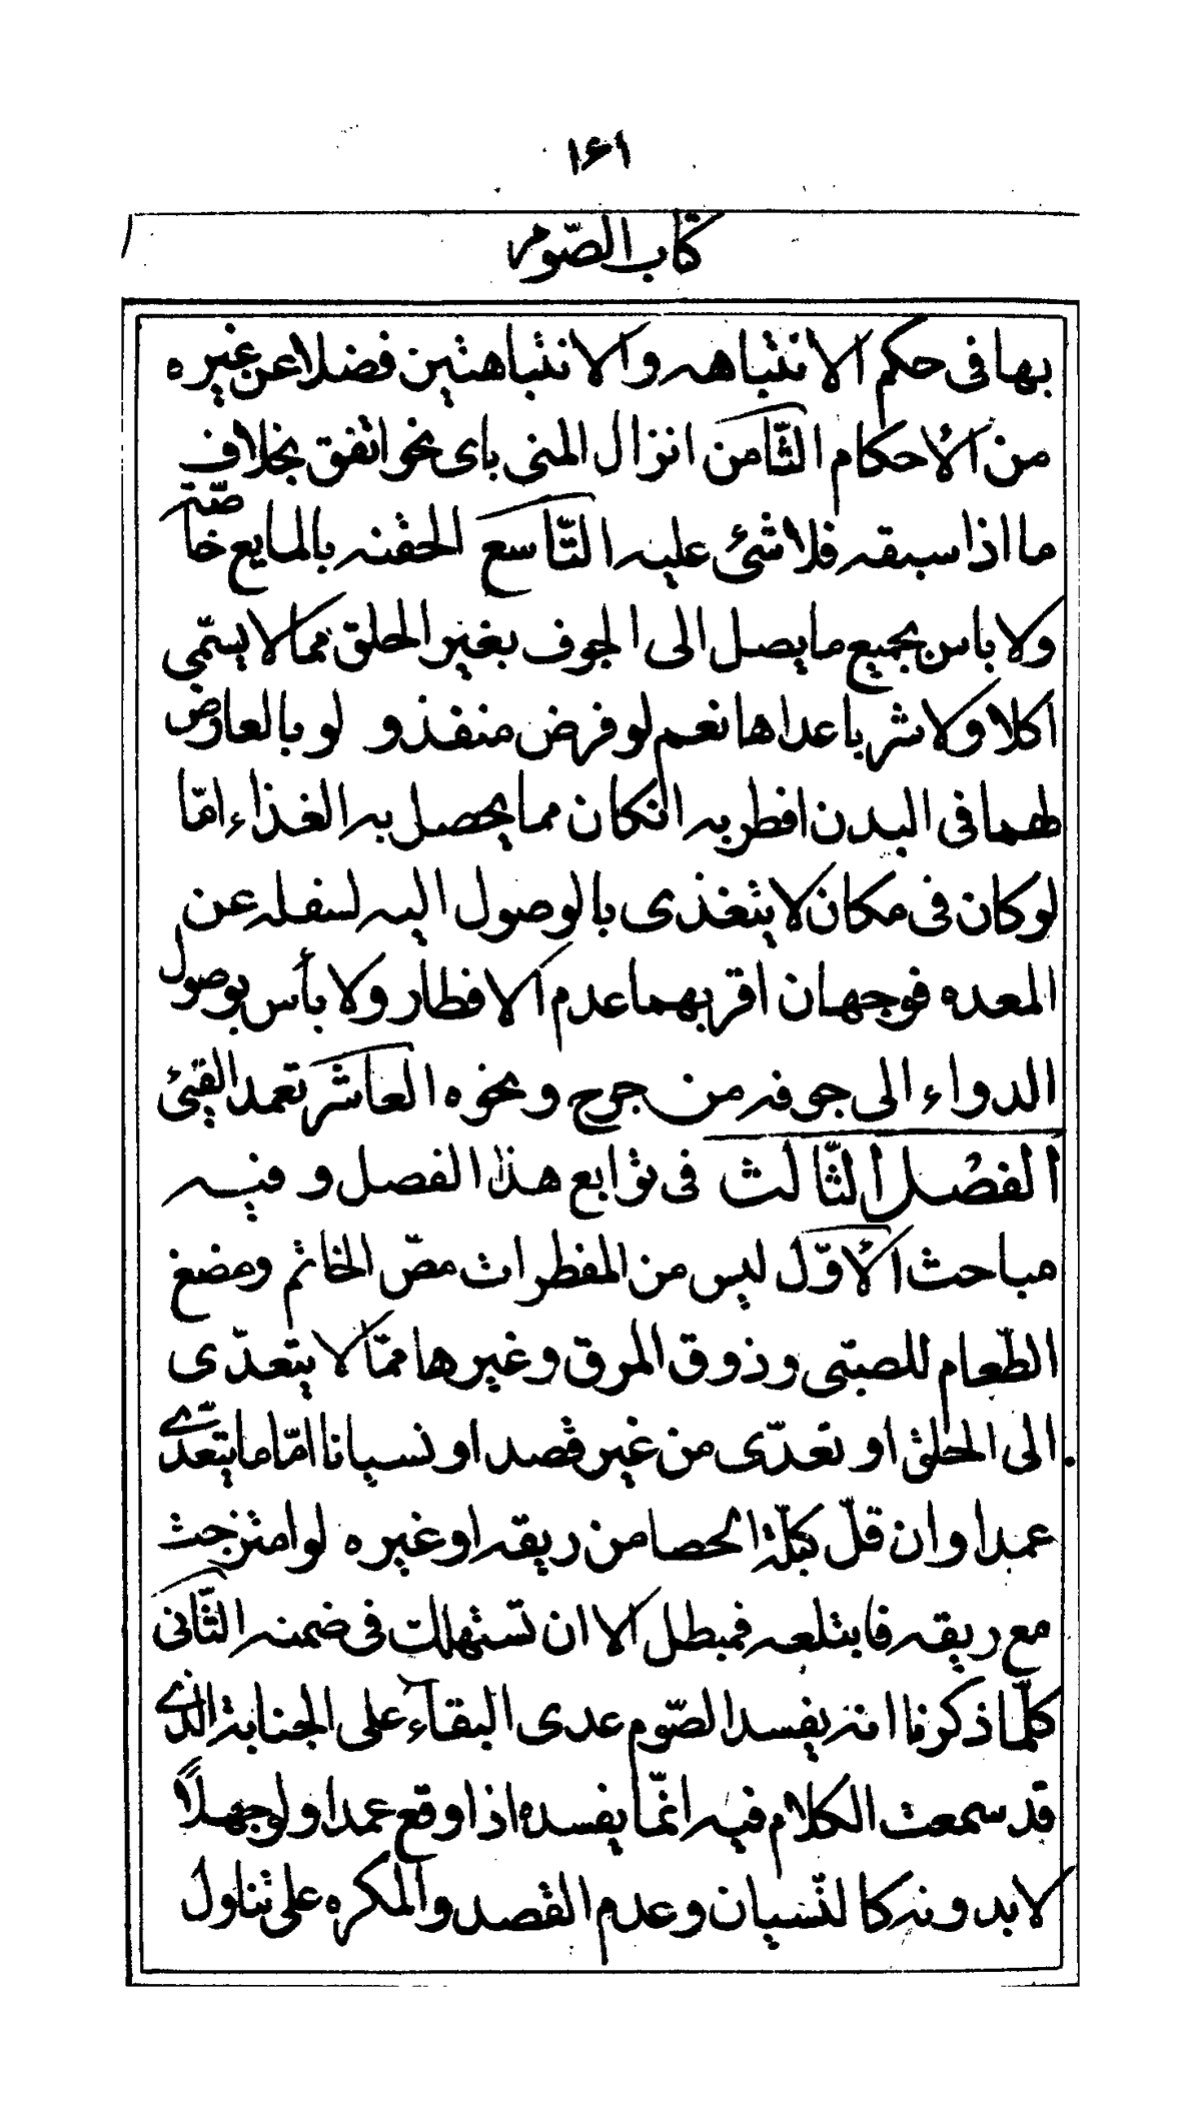 ۱۶۱
كتاب الصّوم
بها فى حكم الانتباهه والانتباهتين فضلا عن غيره
من الأحكام الثّامن انزال المنى باى نحو اتفق بخلاف
ما اذا سبقه فلا شئ عليه التّاسع الحقنه بالمايع خاصّة
ولا باس بجميع ما يصل الى الجوف بغير الحلق مما لا يسمّى
اكلا ولا شربا عداها نعم لو فرض منفذ و لو بالعارض
لهما فى البدن افطر به انكان مما يحصل به الغذاء امّا
لو كان فى مكان لا يتغذى بالوصول اليه لسفله عن
المعده فوجهان اقربهما عدم الافطار ولا بأس بوصول
الدواء الى جوفه من جرح ونحوه العاشر تعمد القيئ
الفصل الثّالث فى توابع هذا الفصل و فيه
مباحث الأوّل ليس من المفطرات مصّ الخاتم ومضغ
الطّعام للصبّى وذوق المرق وغيرها ممّا لا يتعدّى
الى الحلق او تعدّى من غير قصد او نسيانا امّا ما يتعدّى
عمدا وان قلّ كبلّة الحصا من ريقه او غيره لو امتزجت
مع ريقه فابتلعه فمبطل الا ان تستهلك فى ضمنه الثّانى
كلّما ذكرنا انه يفسد الصّوم عدى البقاء على الجنابة الذى
قد سمعت الكلام فيه انمّا يفسده اذا وقع عمدا ولو جهلاً
لا بدونه كالنّسيان وعدم القصد والمكره على تناول